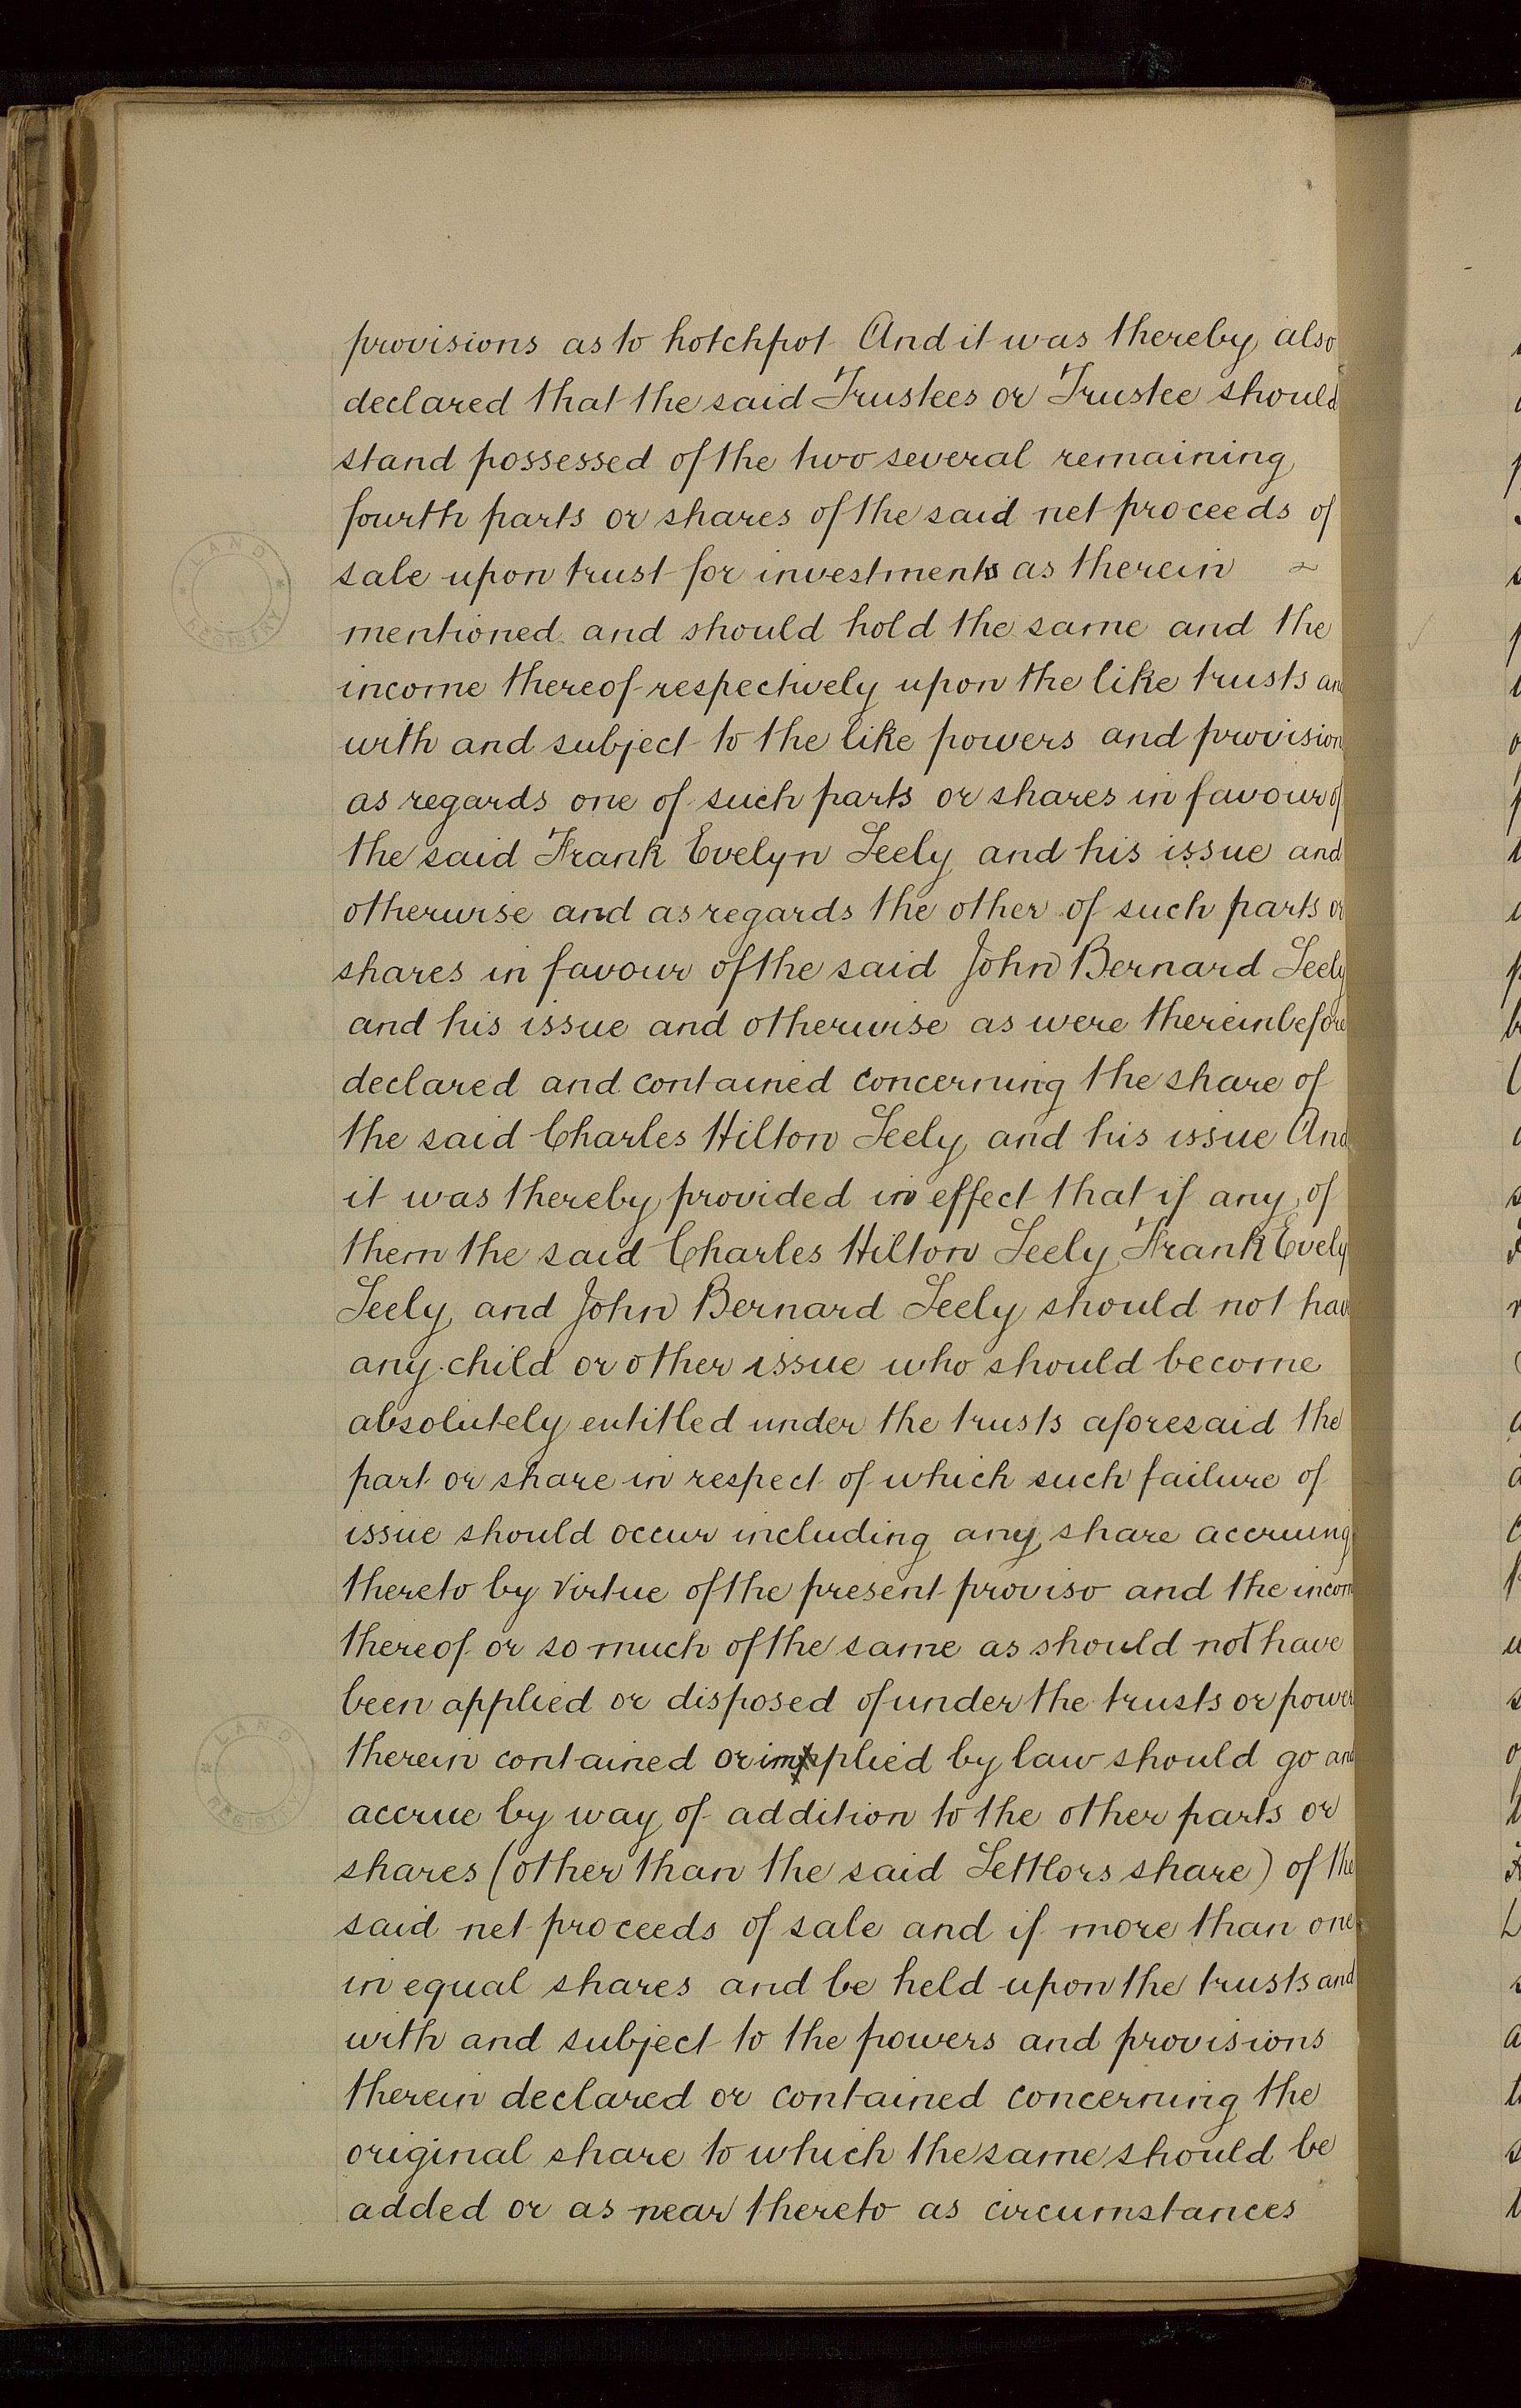 provisions as to hotchpot And it was thereby also
declared that the said Trustees or Trustee should
stand possessed of the two several remaining
fourth parts or shares of the said net proceeds of
sale upon trust for investments as therein ~
mentioned and should hold the same and the
income thereof respectively upon the like trusts an
with and subject to the like powers and provision
as regards one of such parts or shares in favour of
the said Frank Evelyn Seely and his issue and
otherwise and as regards the other of such parts or
shares in favour of the said John Bernard Seely
and his issue and otherwise as were thereinbefore
declared and contained concerning the share of
the said Charles Hilton Seely and his issue And
it was thereby provided in effect that if any of
them the said Charles Hilton Seely Frank Evely
Seely and John Bernard Seely should not hav
any child or other issue who should become
absolutely entitled under the trusts aforesaid the
part or share in respect of which such failure of
issue should occur including any share accruing
thereto by virtue of the present proviso and the incom
thereof or so much of the same as should not have
been applied or disposed of under the trusts or power
therein contained or implied by law should go and
accrue by way of addition to the other parts or
shares (other than the said Settlors share) of the
said net proceeds of sale and if more than one
in equal shares and be held upon the trusts and
with and subject to the powers and provisions
therein declared or contained concerning the
original share to which the same should be
added or as near thereto as circumstances
LAND REGISTRY
LAND REGISTRY